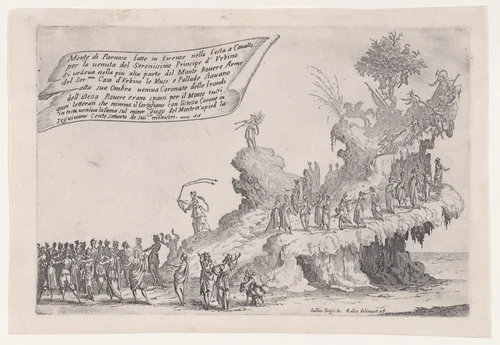 Monte di Parnaso fatto in firenze nella festa a Cavallo
per la venuta del Serenissimo Principe d' Vrbino
si vedeua nella piu alta parte del Monte Rouere Arme
del Ser.mo Casa d'Vrbino le Muse e Pallade stauano
alla sua Ombra ueniua Coronate delle frondi
dell' istessa Rouere erano sparsi per il Monte tutti
quei letterati che nomina il con l'istessa Corone in
testa
Seguiuano Cento settanta de suoi ministri.
Iullius Parigii In.